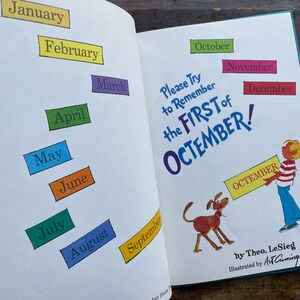 January
February
March
April
May
June
July
August
September
October
November
December
Please Try
to Remember
the FIRST of
OCTEMBER!
OCTEMBER
by Theo. LeSieg
Illustrated by Art Cumings